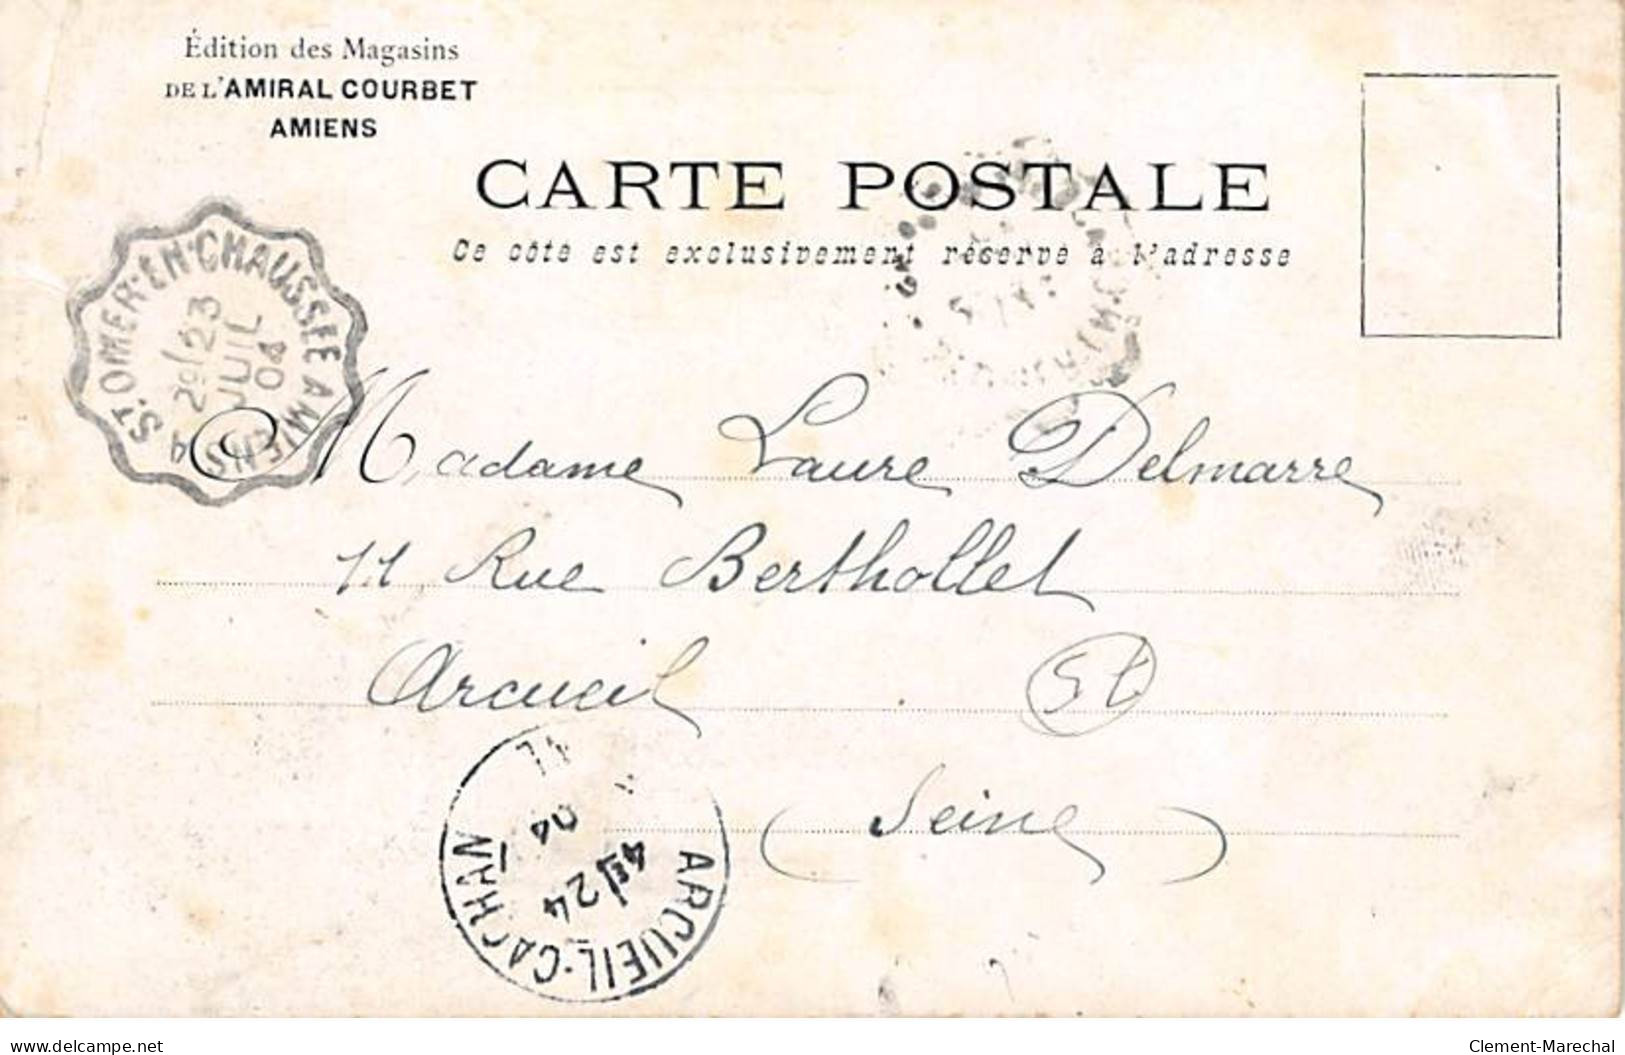 Édition des Magasins
DE L'AMIRAL COURBET
AMIENS
CARTE POSTALE
Ce côté est exclusivement réservé à l'adresse
ST-OMER-EN-CHAUSSÉE A AMIENS
2e/23
JUIL
04
Madame Laure Delmarre
11 Rue Berthollet
Arcueil
St
(Seine)
ARCUEIL-CACHAN
4E/24
04
www.delcampe.net
Clement-Marechal